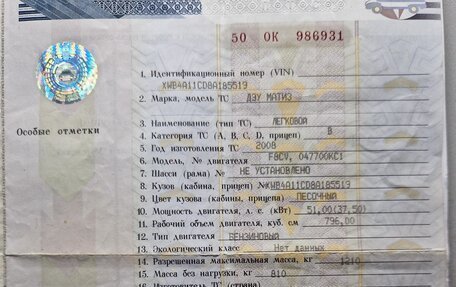 50 ОК 986931
1. Идентификационный номер (VIN)
XWB4A11CD8A185519
2. Марка, модель ТС ДЭУ МАТИЗ
3. Наименование (тип ТС) ЛЕГКОВОЙ
4. Категория ТС (A, B, C, D, прицеп) B
Особые отметки
5. Год изготовления ТС 2008
6. Модель, № двигателя F8CV, 047700KC1
7. Шасси (рама) № НЕ УСТАНОВЛЕНО
8. Кузов (кабина, прицеп) № XWB4A11CD8A185519
9. Цвет кузова (кабины, прицепа) ПЕСОЧНЫЙ
10. Мощность двигателя, л. с. (кВт) 51,00(37,50)
11. Рабочий объем двигателя, куб. см 796,00
12. Тип двигателя БЕНЗИНОВЫЙ
13. Экологический класс Нет данных
14. Разрешенная максимальная масса, кг 1210
15. Масса без нагрузки, кг 810
16. Изготовитель ТС (страна)